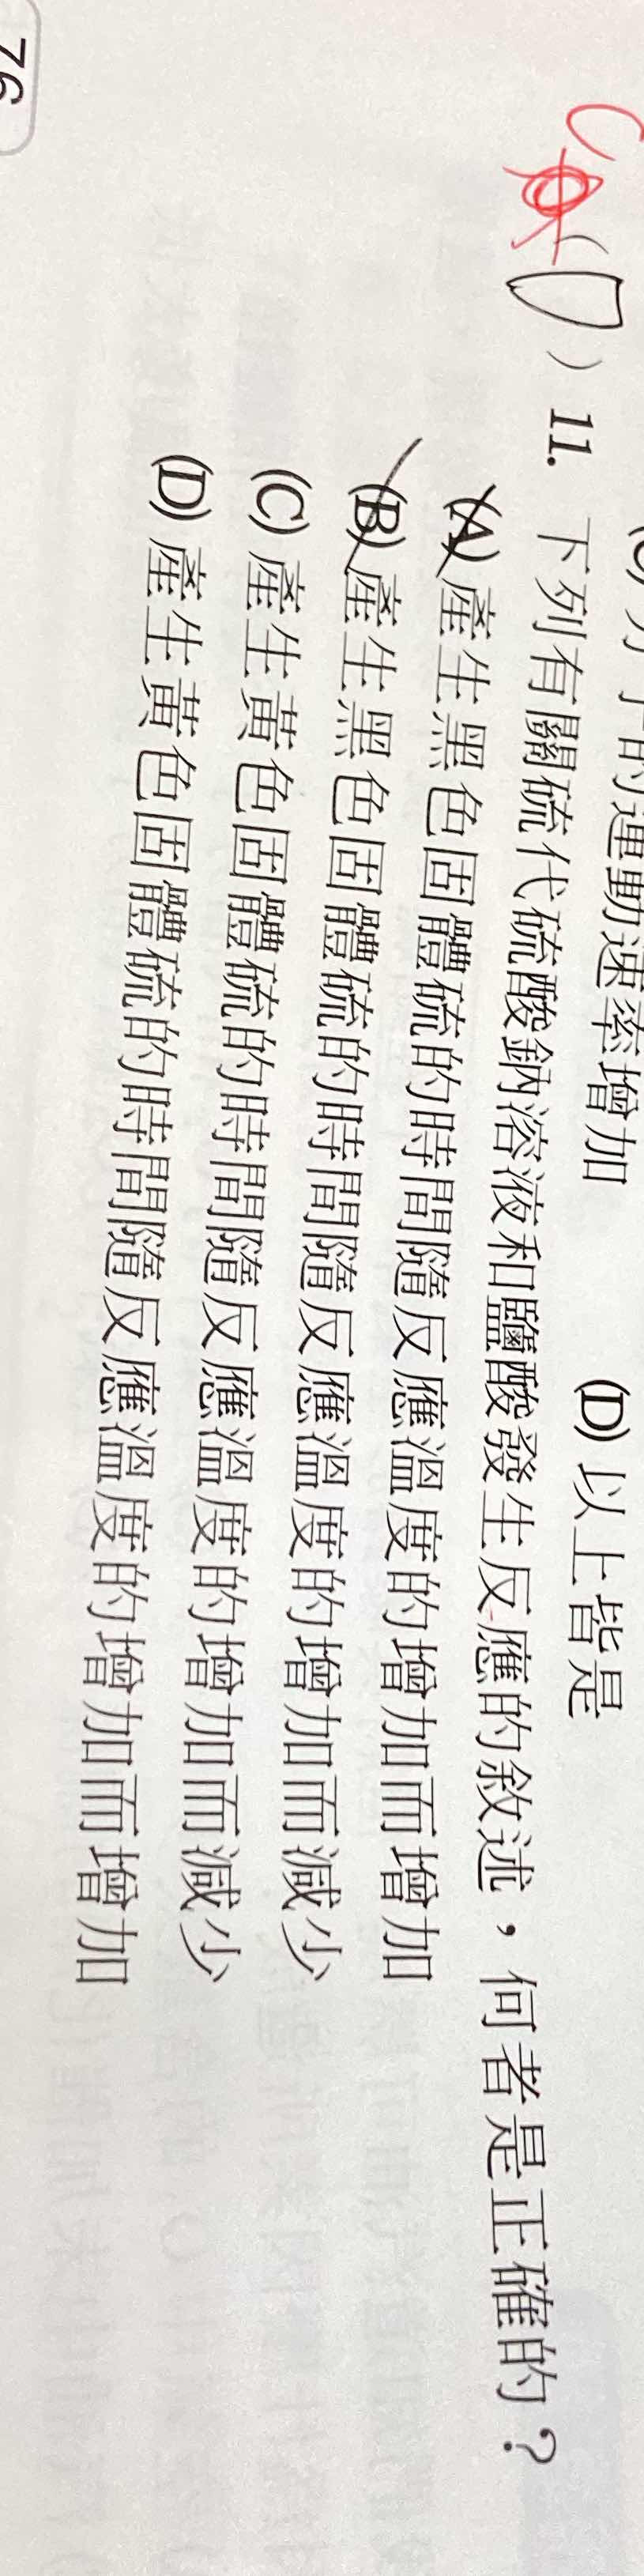 (C) 分子的運動速率增加 (D) 以上皆是
C
(D) 11. 下列有關硫代硫酸鈉溶液和鹽酸發生反應的敘述,何者是正確的?
(A) 產生黑色固體硫的時間隨反應溫度的增加而增加
(B) 產生黑色固體硫的時間隨反應溫度的增加而減少
(C) 產生黃色固體硫的時間隨反應溫度的增加而減少
(D) 產生黃色固體硫的時間隨反應溫度的增加而增加
76